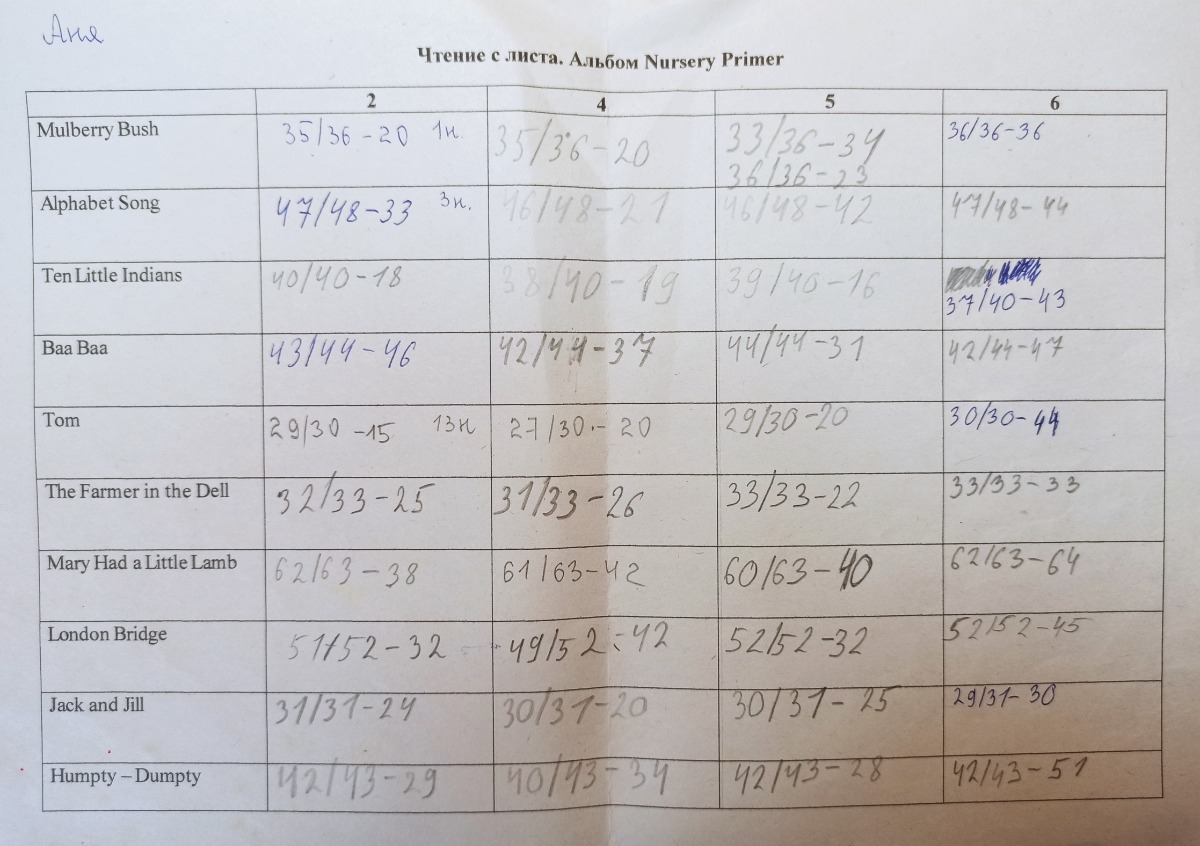 Аня
Чтение с листа. Альбом Nursery Primer
2 4 5 6
Mulberry Bush 35/36-20 1н. 35/36-20 33/36-34 36/36-36
36/36-23
Alphabet Song 47/48-33 3н. 46/48-21 46/48-42 47/48-44
Ten Little Indians 40/40-18 38/40-19 39/40-16
37/40-43
Baa Baa 43/44-46 42/44-37 44/44-31 42/44-47
Tom 29/30-15 13н 27/30-20 29/30-20 30/30-44
The Farmer in the Dell 32/33-25 31/33-26 33/33-22 33/33-33
Mary Had a Little Lamb 62/63-38 61/63-42 60/63-40 62/63-64
London Bridge 51/52-32 49/52-42 52/52-32 52/52-45
Jack and Jill 31/31-24 30/31-20 30/31-25 29/31-30
Humpty – Dumpty 42/43-29 40/43-34 42/43-28 42/43-51